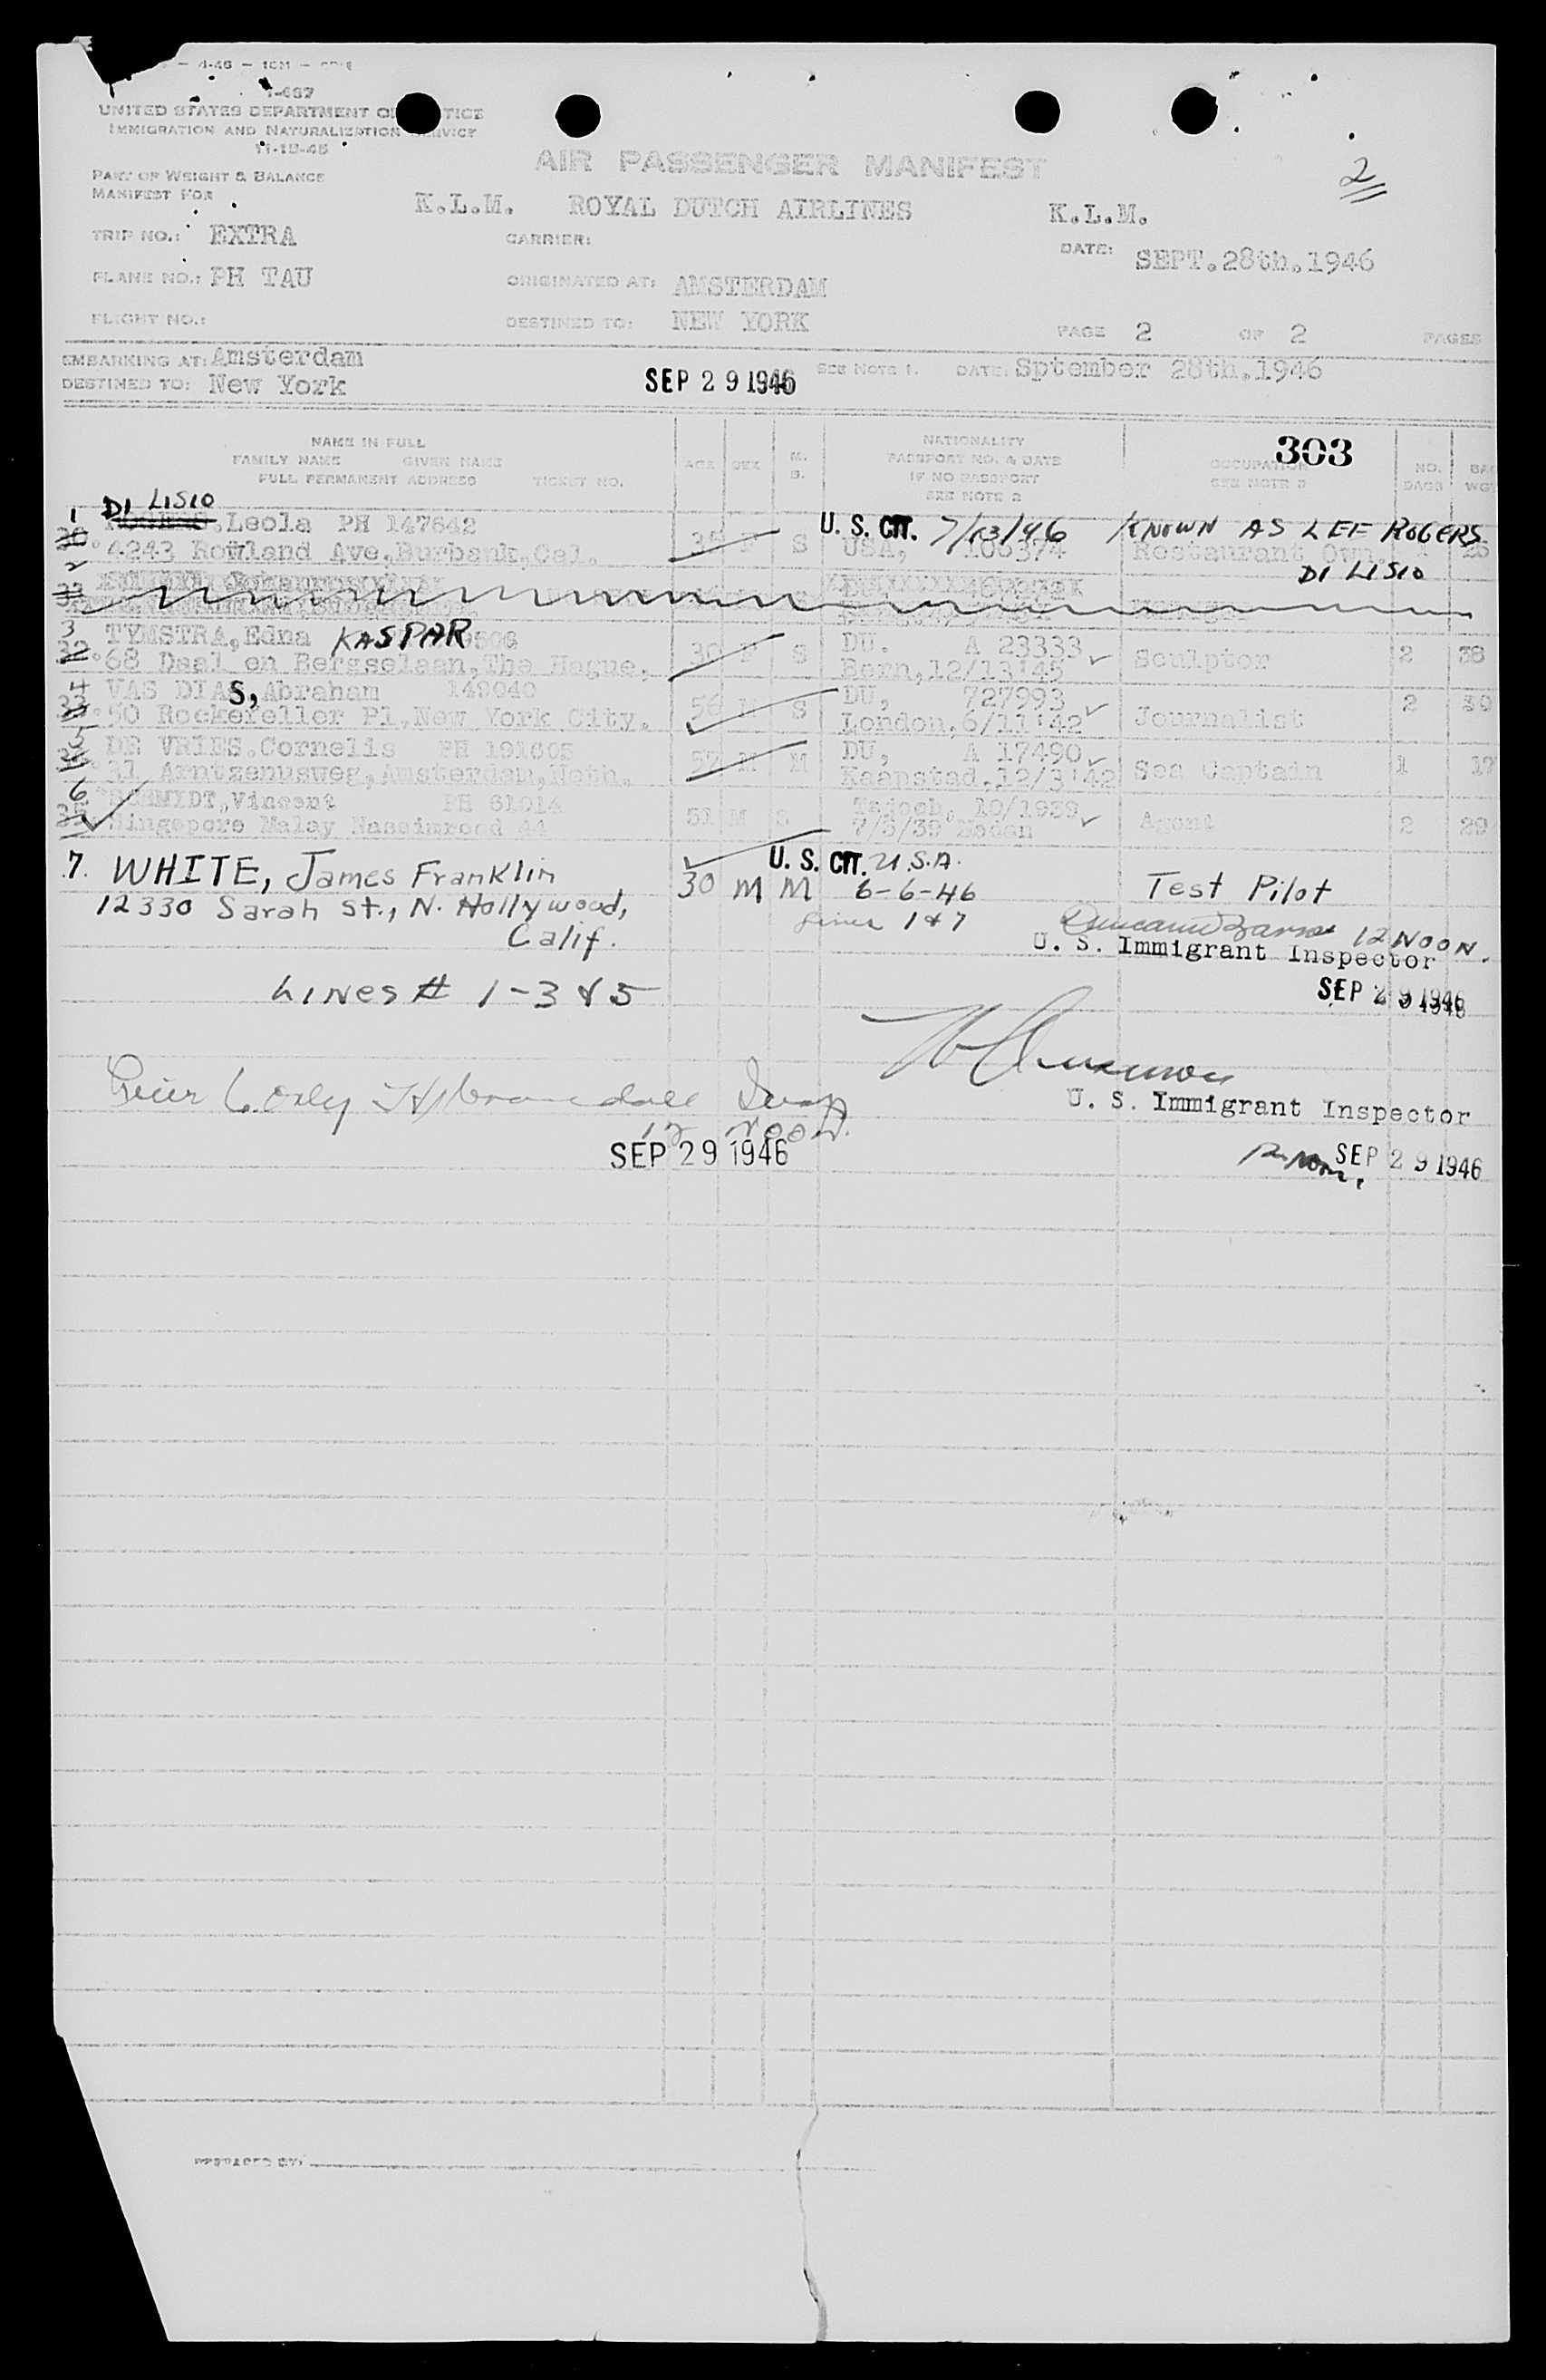 I-467
UNITED STATES DEPARTMENT OF JUSTICE
IMMIGRATION AND NATURALIZATION SERVICE
11-15-45
AIR PASSENGER MANIFEST
2
PART OF WEIGHT & BALANCE
MANIFEST FOR
K.L.M. ROYAL DUTCH AIRLINES K.L.M.
TRIP NO.: EXTRA CARRIER: DATE: SEPT.28th.1946
PLANE NO.: PH TAU ORIGINATED AT: AMSTERDAM
FLIGHT NO.: DESTINED TO: NEW YORK PAGE 2 OF 2 PAGES
EMBARKING AT: Amsterdam SEE NOTE 1. DATE: Sptember 28th.1946
DESTINED TO: New York SEP 29 1946
303
NAME IN FULL
FAMILY NAME GIVEN NAME
FULL PERMANENT ADDRESS TICKET NO.
AGE SEX M. S.
NATIONALITY
PASSPORT NO. & DATE
IF NO PASSPORT
SEE NOTE 2
OCCUPATION
SEE NOTE 3
NO. BAGS
BAG WGT
1 DI LISIO ,Leola PH 147642 U. S. CIT. 7/13/46 KNOWN AS LEE ROGERS
4243 Rowland Ave,Burbank,Cal. 35 F S USA, 106374 Restaurant Own. 1
DI LISIO
2
3 TYMSTRA,Edna KASPAR DU. A 23333
68 Daal en Bergselaan,The Hague, 30 F S Bern,12/13'45 Sculptor 2 38
4 VAS DIAS, Abraham 149040 DU, 727993
50 Rockefeller Pl,New York City. 56 M S London,6/11'42 Journalist 2 30
5 DE VRIES.Cornelis PH 191605 DU, A 17490
31 Arntzenusweg,Amsterdam,Neth. 57 M M Kaapstad,12/3'42 Sea Captain 1 17
6 SCHMIDT,Vincent PH 61014 10/1939
Singapore Malay Nassimroad 44 51 M 7/5/39 Medan Agent 2 29
7. WHITE, James Franklin U. S. CIT. U.S.A.
30 M M 6-6-46 Test Pilot
12330 Sarah St., N. Hollywood, Lines 1 & 7
Calif. 12 NOON.
U. S. Immigrant Inspector
LINES # 1-3 & 5 SEP 29 1946
U. S. Immigrant Inspector
12 noon.
SEP 29 1946
12 noon. SEP 29 1946
PREPARED BY: